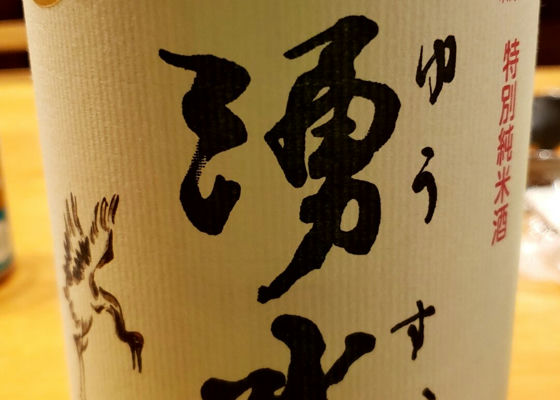 特別純米酒
ゆうす
湧水